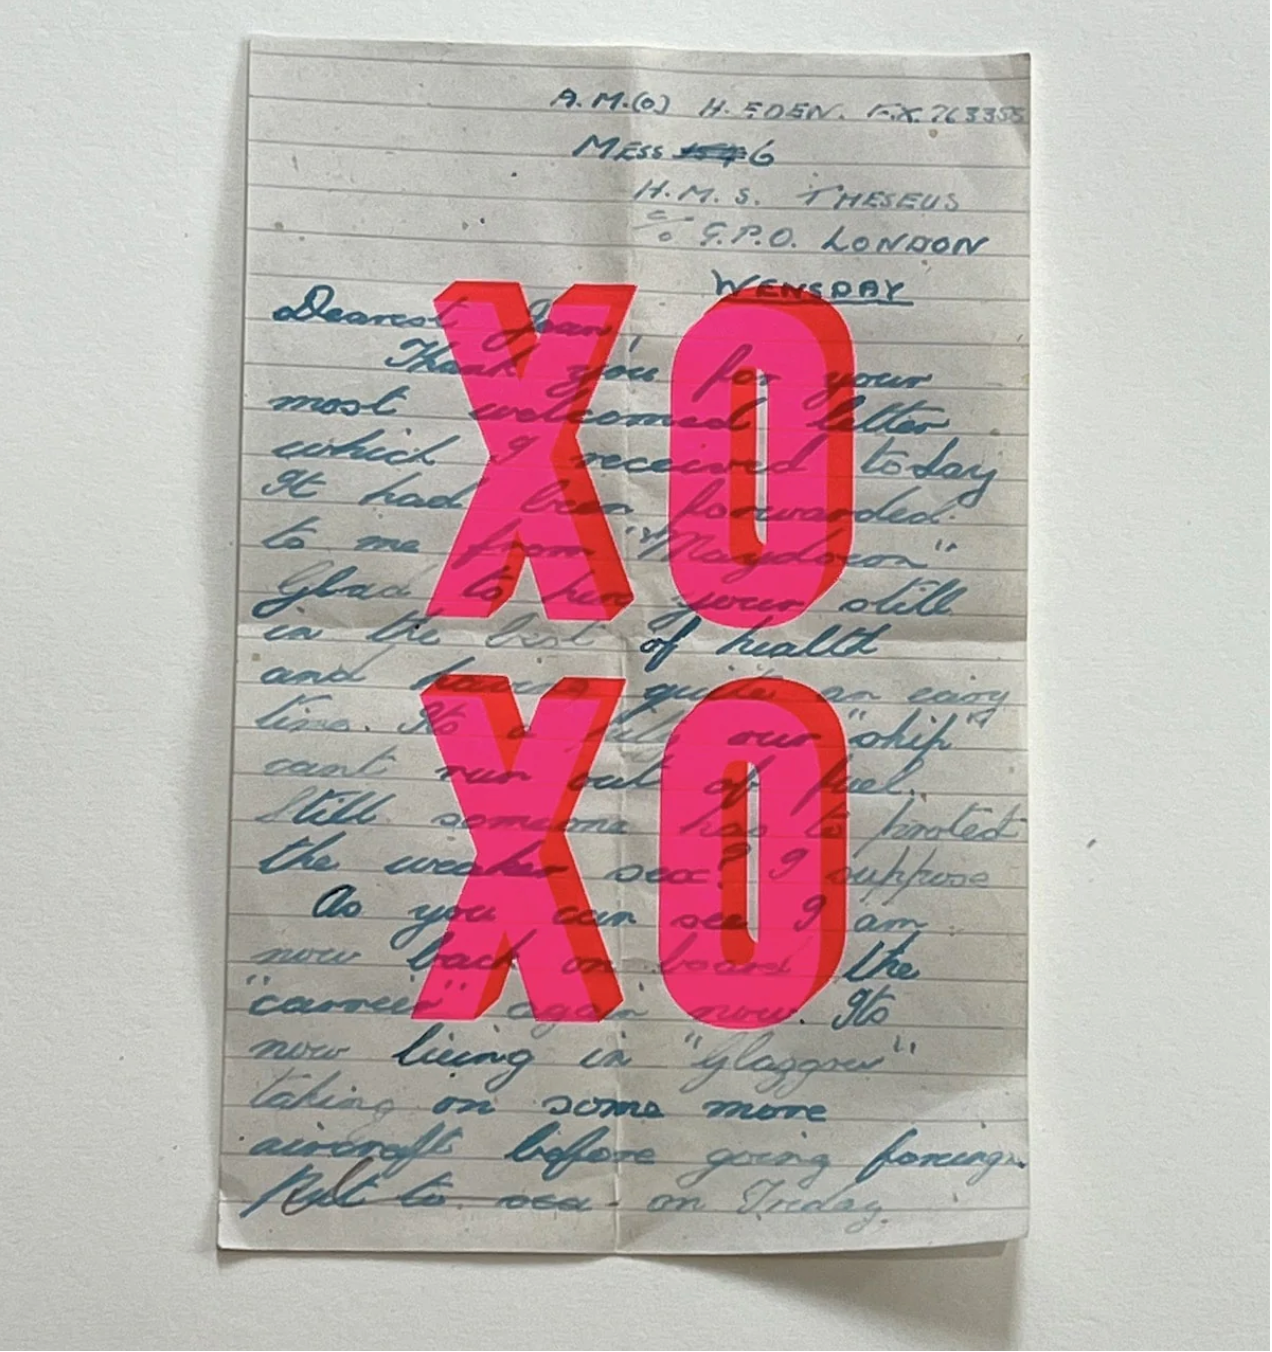 A.M.(O) H. EDEN. F.X. 763355
MESS 6
H.M.S. THESEUS
c/o G.P.O. LONDON
WENSDAY
Dearest Jean,
Thank you for your
most welcomed letter
which I received today
It had been forwarded
to me from "Maydown"
Glad to her your still
in the best of health
and having quite an easy
time. Its a pity our "ship"
cant run out of fuel.
Still someone has to protect
the weaker sex? I suppose
As you can see I am
now back on board the
"carreir" again now. Its
now lieing in "Glasgow"
taking on some more
aircraft before going foreign.
Put to sea on Friday.
XO
XO